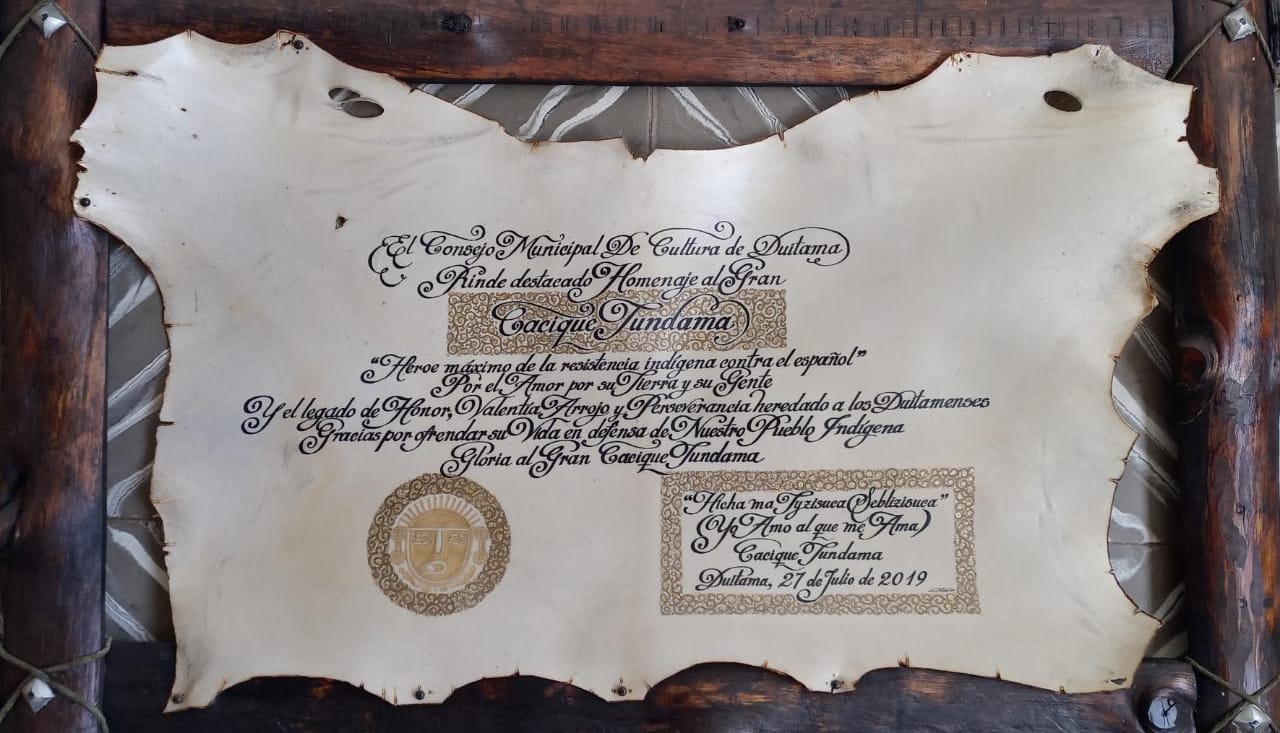 El Consejo Municipal De Cultura de Duitama
Rinde destacado Homenaje al Gran
Cacique Tundama
"Héroe máximo de la resistencia indígena contra el español"
Por el Amor por su Tierra y su Gente
Y el legado de Honor, Valentía, Arrojo y Perseverancia heredado a los Duitamenses
Gracias por ofrendar su Vida en defensa de Nuestro Pueblo Indígena
Gloria al Gran Cacique Tundama
"Hicha ma Tyzisuca Seblizisuca"
(Yo Amo al que me Ama)
Cacique Tundama
Duitama, 27 de Julio de 2019